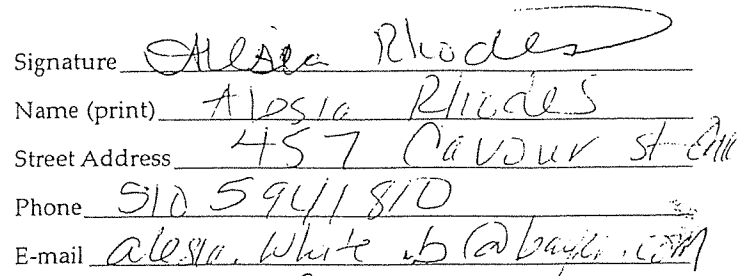 Signature Alesia Rhodes
Name (print) Alesia Rhodes
Street Address 457 Cavour st
Phone 510 594 1810
E-mail alesia.white